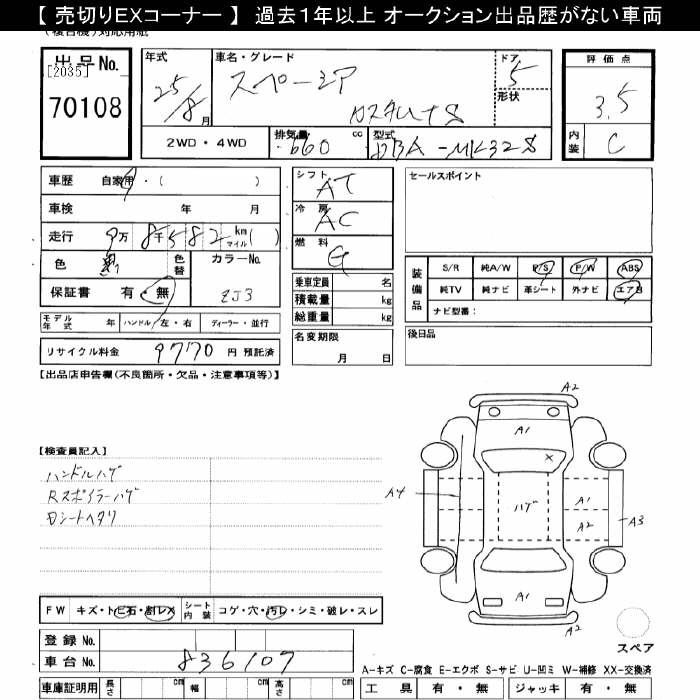 【 売切りEXコーナー 】 過去1年以上 オークション出品歴がない車両
(複合機)対応用紙
出品No. [2035] 70108
年式 25/8 月
車名・グレード スペーシア カスタムTS
ドア 5
形状
評価点 3.5
内装 C
2WD・4WD
排気量 660 cc
型式 DBA-MK32S
車歴 自家用・( )
車検 年 月
走行 9万 8千582 km マイル( )
色 黒 色替
カラーNo. ZJ3
保証書 有・無
モデル年式 年 ハンドル 左・右 ディーラー・並行
リサイクル料金 9770 円 預託済
シフト AT
冷房 AC
燃料 G
乗車定員 名
積載量 kg
総重量 kg
名変期限 月 日
セールスポイント
装備品 S/R 純A/W P/S P/W ABS
純TV 純ナビ 革シート 外ナビ エアB
ナビ型番:
後日品
【出品店申告欄(不良箇所・欠品・注意事項等)】
【検査員記入】
ハンドルハゲ
Rスポイラーハゲ
Dシートヘタリ
A2
A1
A4
ハゲ
A1
A2
A3
A1
A2
スペア
FW キズ・トビ石・割レX シート内装 コゲ・穴・汚レ・シミ・破レ・スレ
登録No.
車台No. 836107
車庫証明用 長さ cm 幅 cm 高さ cm
A-キズ C-腐食 E-エクボ S-サビ U-凹ミ W-補修 XX-交換済
工具 有・無 ジャッキ 有・無